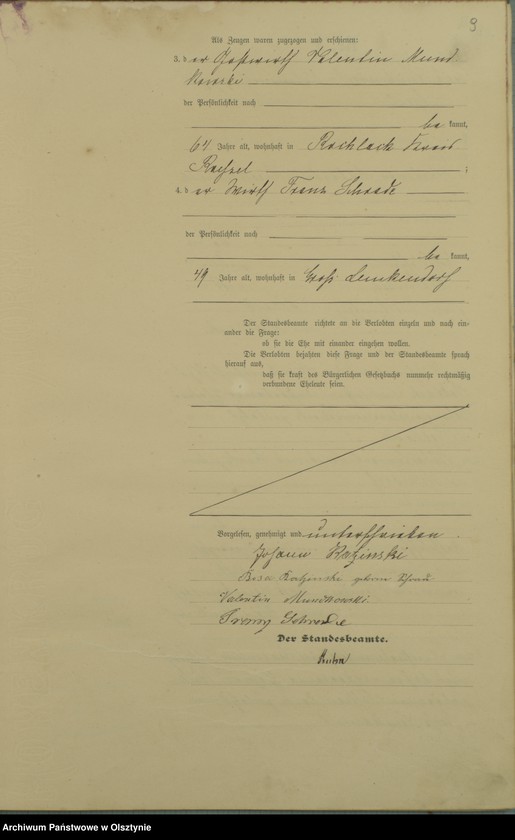 9
Als Zeugen waren zugezogen und erschienen:
3. d er Gastwirth Valentin Mund
kowski
der Persönlichkeit nach
be kannt,
64 Jahre alt, wohnhaft in Rochlack Kreis
Roessel ;
4. d er Wirth Franz Schrade
der Persönlichkeit nach
be kannt,
49 Jahre alt, wohnhaft in Groß Lemkendorf
Der Standesbeamte richtete an die Verlobten einzeln und nach ein-
ander die Frage:
ob sie die Ehe mit einander eingehen wollen.
Die Verlobten bejahten diese Frage und der Standesbeamte sprach
hierauf aus,
daß sie kraft des Bürgerlichen Gesetzbuchs nunmehr rechtmäßig
verbundene Eheleute seien.
Vorgelesen, genehmigt und unterschrieben
Johann
Rosa geborene
Valentin Mundkowski
Franz Schrade
Der Standesbeamte.
Archiwum Państwowe w Olsztynie